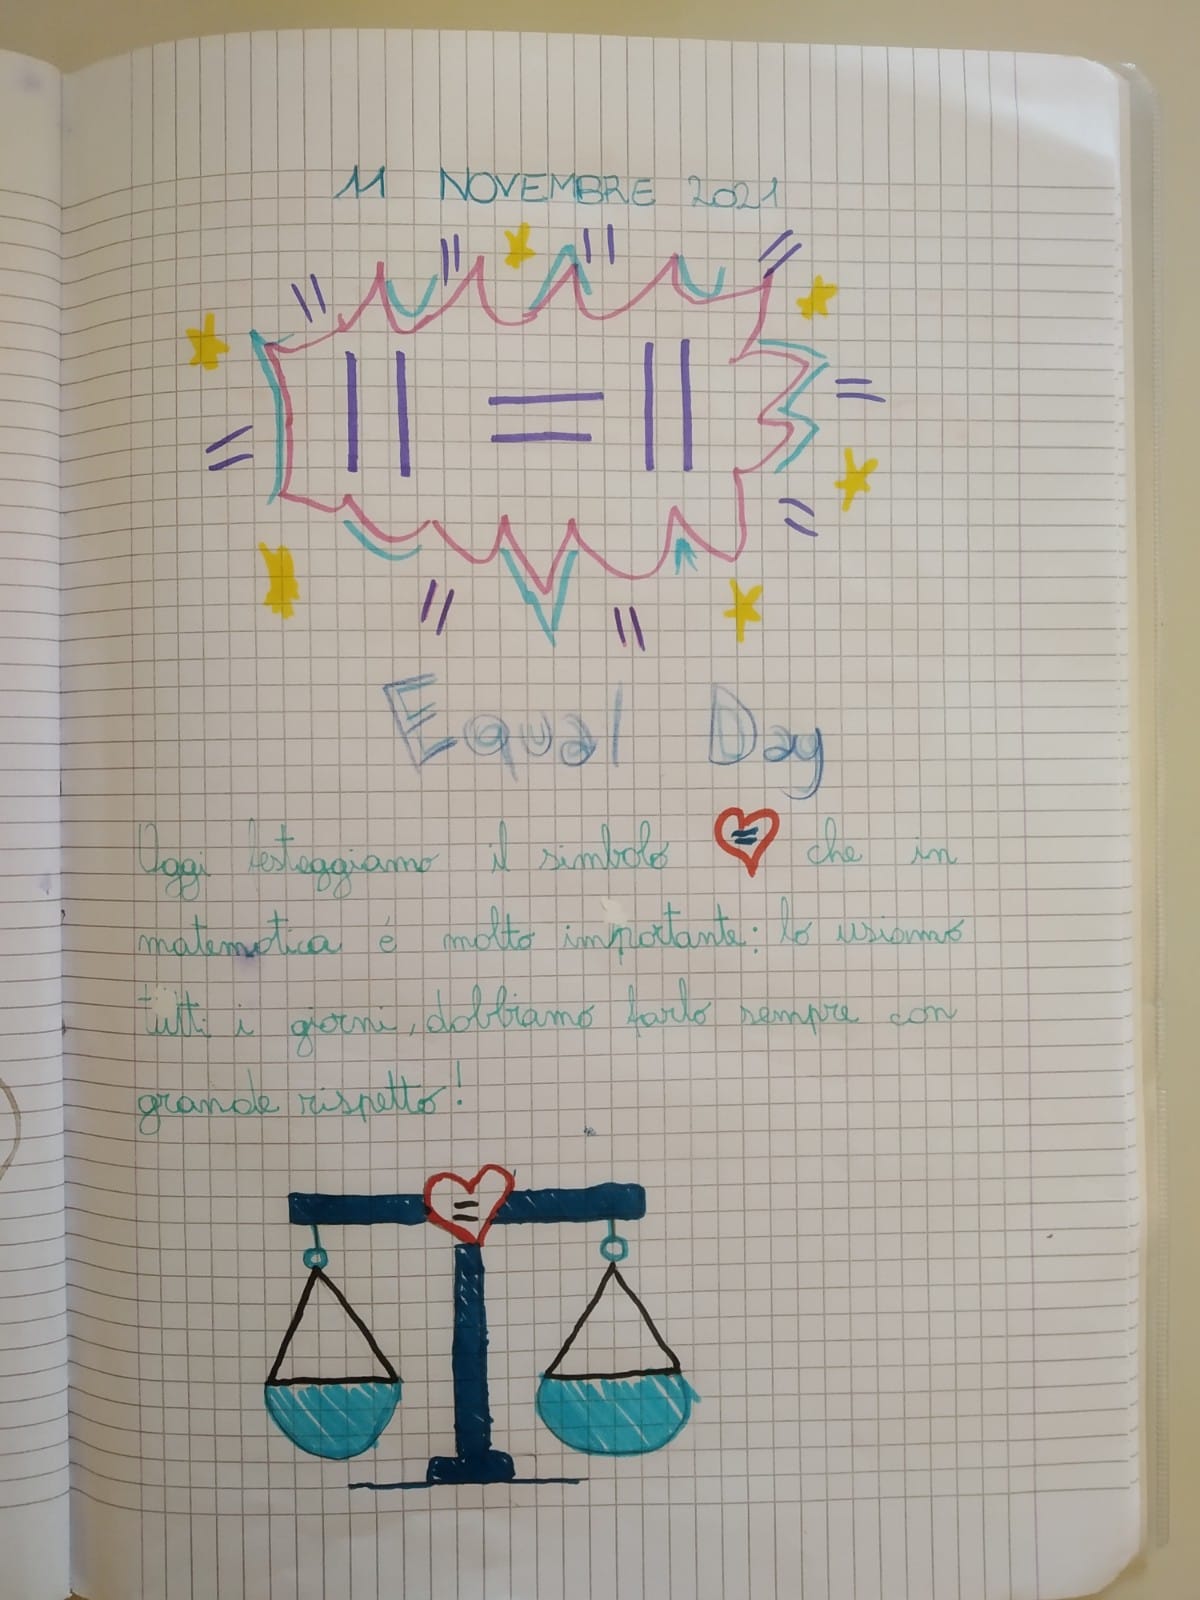 11 NOVEMBRE 2021
|| = ||
Equal Day
Oggi festeggiamo il simbolo = che in
matematica é molto importante: lo usiamo
tutti i giorni, dobbiamo farlo sempre con
grande rispetto!
=